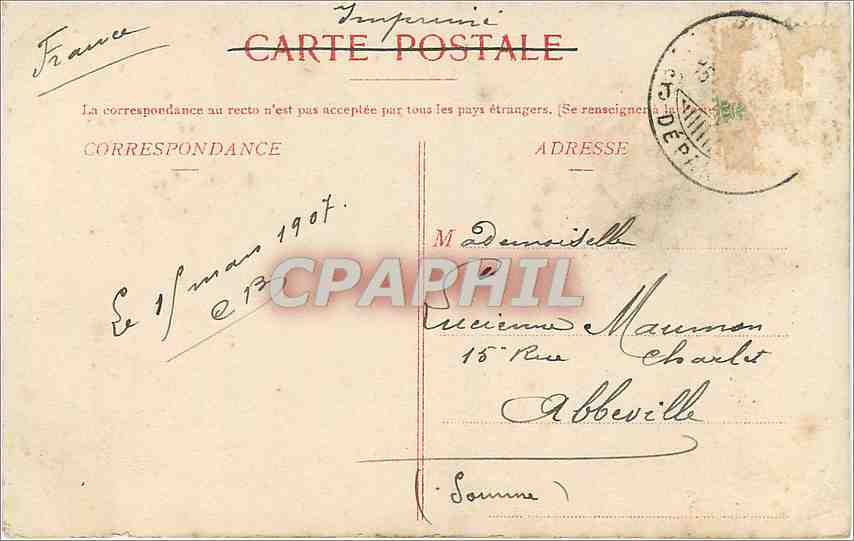 Imprimé
France
CARTE POSTALE
La correspondance au recto n'est pas acceptée par tous les pays étrangers. (Se renseigner à la
CORRESPONDANCE
ADRESSE
DÉPA
Le 15 mars 1907.
CB
Mademoiselle
Lucienne Maumon
15 Rue Charlet
Abbeville
(Somme)
CPAPHIL